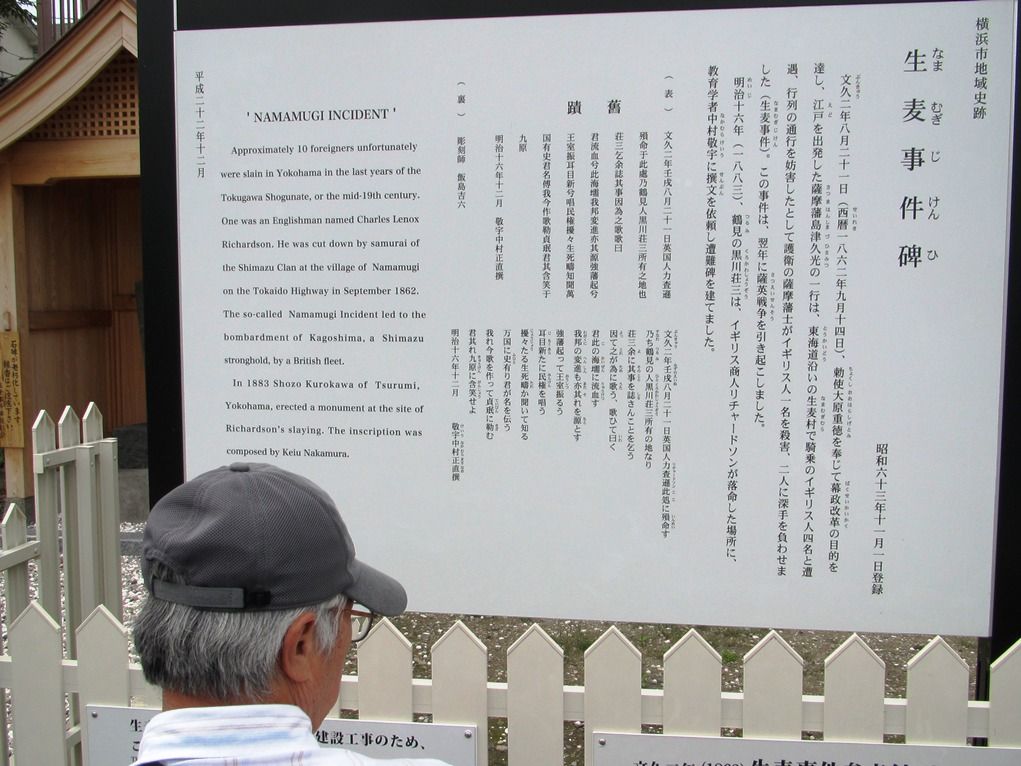 横浜市地域史跡
生麦事件碑
なま むぎ じ けん ひ
昭和六十三年十一月一日登録
文久二年八月二十一日（西暦一八六二年九月十四日）、勅使大原重徳を奉じて幕政改革の目的を
達し、江戸を出発した薩摩藩島津久光の一行は、東海道沿いの生麦村で騎乗のイギリス人四名と遭
遇、行列の通行を妨害したとして護衛の薩摩藩士がイギリス人一名を殺害、二人に深手を負わせま
した（生麦事件）。この事件は、翌年に薩英戦争を引き起こしました。
明治十六年（一八八三）、鶴見の黒川荘三は、イギリス商人リチャードソンが落命した場所に、
教育学者中村敬宇に撰文を依頼し遭難碑を建てました。
（表）
文久二年壬戌八月二十一日英国人力査遜
殞命于此處乃鶴見人黒川荘三所有之地也
荘三乞余誌其事因為之歌歌曰
君流血兮此海壖我邦変進亦其源強藩起兮
王室振耳目新兮唱民権擾々生死疇知聞萬
国有史君名傳我今作歌勒貞珉君其含笑于
九原
明治十六年十二月 敬宇中村正直撰
舊蹟
（裏）
彫刻師 飯島吉六
文久二年壬戌八月二十一日英国人力査遜此処に殞命す
乃ち鶴見の人黒川荘三所有の地なり
荘三余に其事を誌さんことを乞う
因て之が為に歌う、歌ひて曰く
君此の海壖に流血す
我邦の変進も亦其れを源とす
強藩起って王室振るう
耳目新たに民権を唱う
擾々たる生死疇か聞いて知る
万国に史有り君が名を伝う
我れ今歌を作って貞珉に勒む
君其れ九原に含笑せよ
明治十六年十二月 敬宇中村正直撰
' NAMAMUGI INCIDENT '
Approximately 10 foreigners unfortunately
were slain in Yokohama in the last years of the
Tokugawa Shogunate, or the mid-19th century.
One was an Englishman named Charles Lenox
Richardson. He was cut down by samurai of
the Shimazu Clan at the village of Namamugi
on the Tokaido Highway in September 1862.
The so-called Namamugi Incident led to the
bombardment of Kagoshima, a Shimazu
stronghold, by a British fleet.
In 1883 Shozo Kurokawa of Tsurumi,
Yokohama, erected a monument at the site of
Richardson's slaying. The inscription was
composed by Keiu Nakamura.
平成二十二年十二月
建設工事のため、